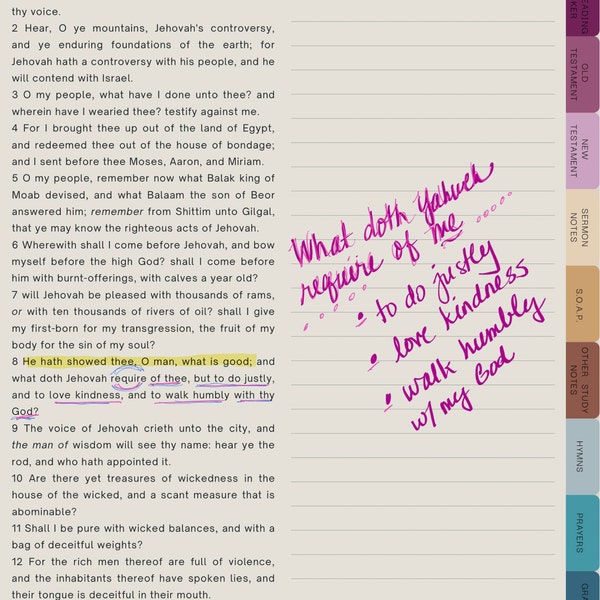 thy voice.
2 Hear, O ye mountains, Jehovah's controversy,
and ye enduring foundations of the earth; for
Jehovah hath a controversy with his people, and he
will contend with Israel.
3 O my people, what have I done unto thee? and
wherein have I wearied thee? testify against me.
4 For I brought thee up out of the land of Egypt,
and redeemed thee out of the house of bondage;
and I sent before thee Moses, Aaron, and Miriam.
5 O my people, remember now what Balak king of
Moab devised, and what Balaam the son of Beor
answered him; remember from Shittim unto Gilgal,
that ye may know the righteous acts of Jehovah.
6 Wherewith shall I come before Jehovah, and bow
myself before the high God? shall I come before
him with burnt-offerings, with calves a year old?
7 will Jehovah be pleased with thousands of rams,
or with ten thousands of rivers of oil? shall I give
my first-born for my transgression, the fruit of my
body for the sin of my soul?
8 He hath showed thee, O man, what is good; and
what doth Jehovah require of thee, but to do justly,
and to love kindness, and to walk humbly with thy
God?
9 The voice of Jehovah crieth unto the city, and
the man of wisdom will see thy name: hear ye the
rod, and who hath appointed it.
10 Are there yet treasures of wickedness in the
house of the wicked, and a scant measure that is
abominable?
11 Shall I be pure with wicked balances, and with a
bag of deceitful weights?
12 For the rich men thereof are full of violence,
and the inhabitants thereof have spoken lies, and
their tongue is deceitful in their mouth.
What doth Yahweh
require of me .....
• to do justly
• love kindness
• walk humbly
w/ my God
OLD
TESTAMENT
NEW
TESTAMENT
SERMON
NOTES
S.O.A.P.
OTHER STUDY
NOTES
HYMNS
PRAYERS